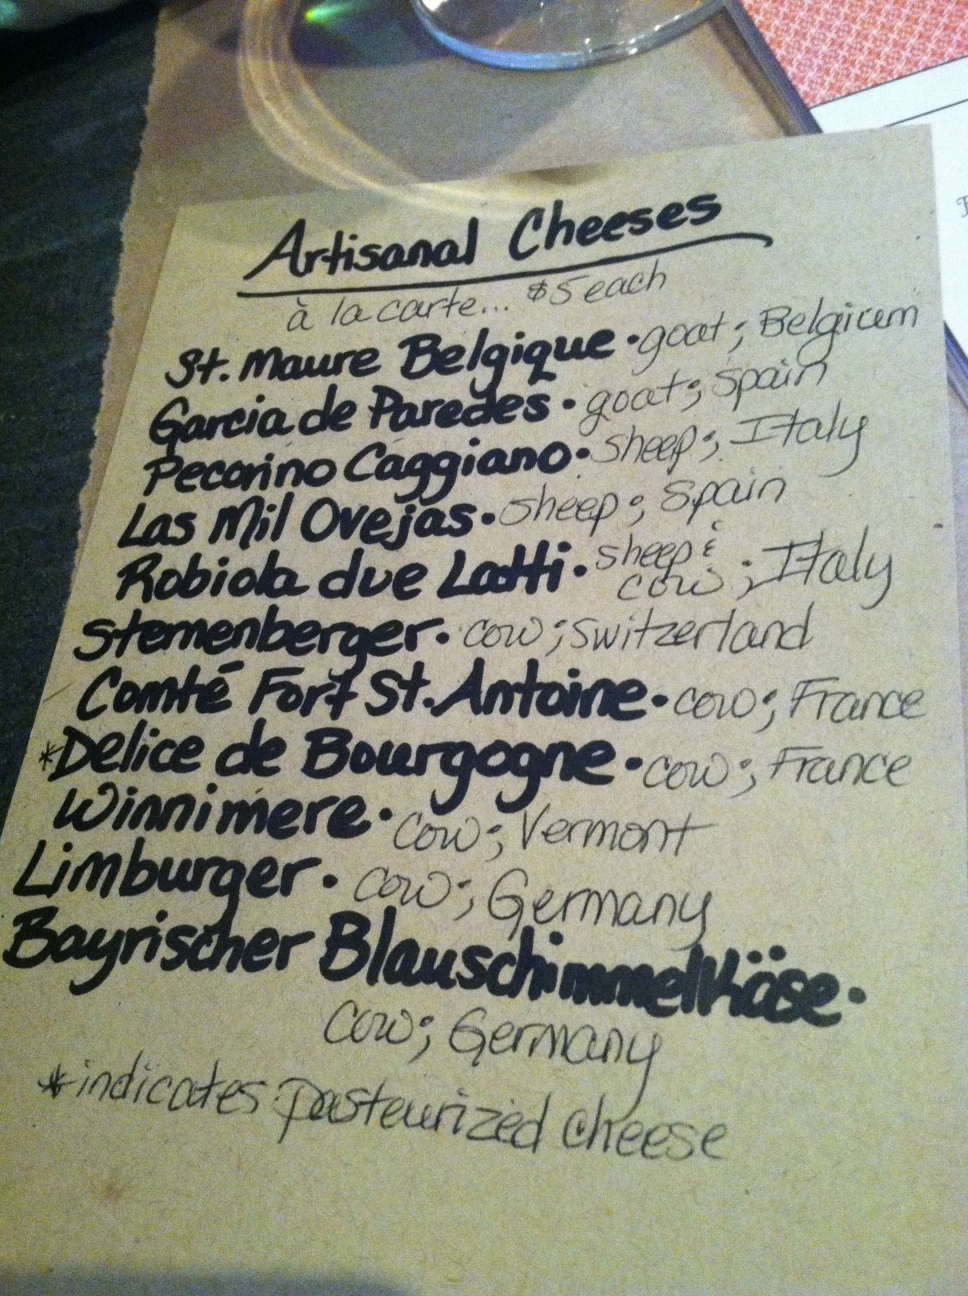 Artisanal Cheeses
à la carte... $5 each
St. Maure Belgique • goat; Belgium
Garcia de Paredes • goat; Spain
Pecorino Caggiano • sheep; Italy
Las Mil Ovejas • sheep; Spain
Robiola due Latti • sheep & cow; Italy
Stemenberger • cow; Switzerland
Comté Fort St. Antoine • cow; France
*Delice de Bourgogne • cow; France
Winnimere • cow; Vermont
Limburger • cow; Germany
Bayrischer Blauschimmelkäse •
cow; Germany
*indicates pasteurized cheese